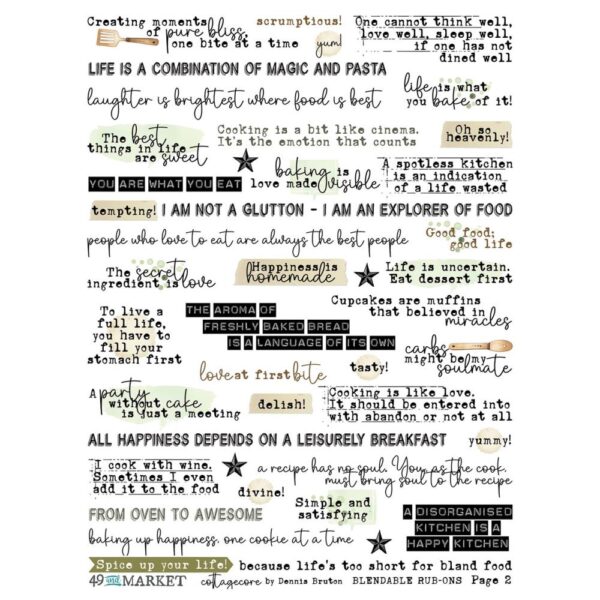 Creating moments
of pure bliss,
one bite at a time
scrumptious!
yum!
One cannot think well,
love well, sleep well,
if one has not
dined well
LIFE IS A COMBINATION OF MAGIC AND PASTA
life is what
you bake of it!
laughter is brightest where food is best
The best
things in life
are sweet
Cooking is a bit like cinema.
It's the emotion that counts
Oh so
heavenly!
YOU ARE WHAT YOU EAT
baking is
love made visible
A spotless kitchen
is an indication
of a life wasted
tempting!
I AM NOT A GLUTTON - I AM AN EXPLORER OF FOOD
people who love to eat are always the best people
Good food;
good life
The secret
ingredient is love
Happiness is
homemade
Life is uncertain.
Eat dessert first
To live a
full life,
you have to
fill your
stomach first
THE AROMA OF
FRESHLY BAKED BREAD
IS A LANGUAGE OF ITS OWN
Cupcakes are muffins
that believed in
miracles
carbs
might be my
soulmate
love at first bite
tasty!
A party
without cake
is just a meeting
delish!
Cooking is like love.
It should be entered into
with abandon or not at all
ALL HAPPINESS DEPENDS ON A LEISURELY BREAKFAST
yummy!
I cook with wine.
Sometimes I even
add it to the food
a recipe has no soul. You, as the cook,
must bring soul to the recipe
divine!
Simple and
satisfying
FROM OVEN TO AWESOME
A DISORGANISED
KITCHEN IS A
HAPPY KITCHEN
baking up happiness, one cookie at a time
Spice up your life!
because life's too short for bland food
49 and MARKET
cottagecore by Dennis Bruton
BLENDABLE RUB-ONS Page 2